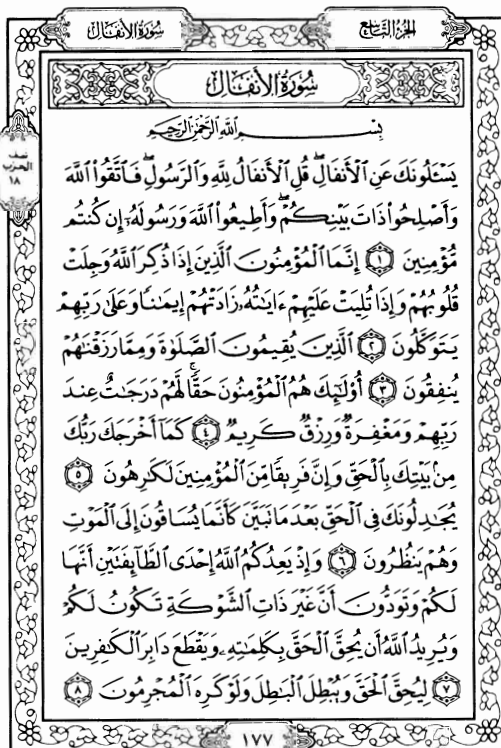 الجزء التاسع
سورة الأنفال
سُورَةُ الأَنفَالِ
بِسْمِ اللَّهِ الرَّحْمَٰنِ الرَّحِيمِ
نصف
الحزب
١٨
يَسْـَٔلُونَكَ عَنِ الْأَنفَالِ ۖ قُلِ الْأَنفَالُ لِلَّهِ وَالرَّسُولِ ۖ فَاتَّقُوا اللَّهَ
وَأَصْلِحُوا ذَاتَ بَيْنِكُمْ ۖ وَأَطِيعُوا اللَّهَ وَرَسُولَهُ إِن كُنتُم
مُّؤْمِنِينَ ١ إِنَّمَا الْمُؤْمِنُونَ الَّذِينَ إِذَا ذُكِرَ اللَّهُ وَجِلَتْ
قُلُوبُهُمْ وَإِذَا تُلِيَتْ عَلَيْهِمْ ءَايَٰتُهُ زَادَتْهُمْ إِيمَٰنًا وَعَلَىٰ رَبِّهِمْ
يَتَوَكَّلُونَ ٢ الَّذِينَ يُقِيمُونَ الصَّلَوٰةَ وَمِمَّا رَزَقْنَٰهُمْ
يُنفِقُونَ ٣ أُولَٰئِكَ هُمُ الْمُؤْمِنُونَ حَقًّا ۚ لَّهُمْ دَرَجَٰتٌ عِندَ
رَبِّهِمْ وَمَغْفِرَةٌ وَرِزْقٌ كَرِيمٌ ٤ كَمَا أَخْرَجَكَ رَبُّكَ
مِنۢ بَيْتِكَ بِالْحَقِّ وَإِنَّ فَرِيقًا مِّنَ الْمُؤْمِنِينَ لَكَٰرِهُونَ ٥
يُجَٰدِلُونَكَ فِي الْحَقِّ بَعْدَ مَا تَبَيَّنَ كَأَنَّمَا يُسَاقُونَ إِلَى الْمَوْتِ
وَهُمْ يَنظُرُونَ ٦ وَإِذْ يَعِدُكُمُ اللَّهُ إِحْدَى الطَّائِفَتَيْنِ أَنَّهَا
لَكُمْ وَتَوَدُّونَ أَنَّ غَيْرَ ذَاتِ الشَّوْكَةِ تَكُونُ لَكُمْ
وَيُرِيدُ اللَّهُ أَن يُحِقَّ الْحَقَّ بِكَلِمَٰتِهِ وَيَقْطَعَ دَابِرَ الْكَٰفِرِينَ
٧ لِيُحِقَّ الْحَقَّ وَيُبْطِلَ الْبَٰطِلَ وَلَوْ كَرِهَ الْمُجْرِمُونَ ٨
١٧٧